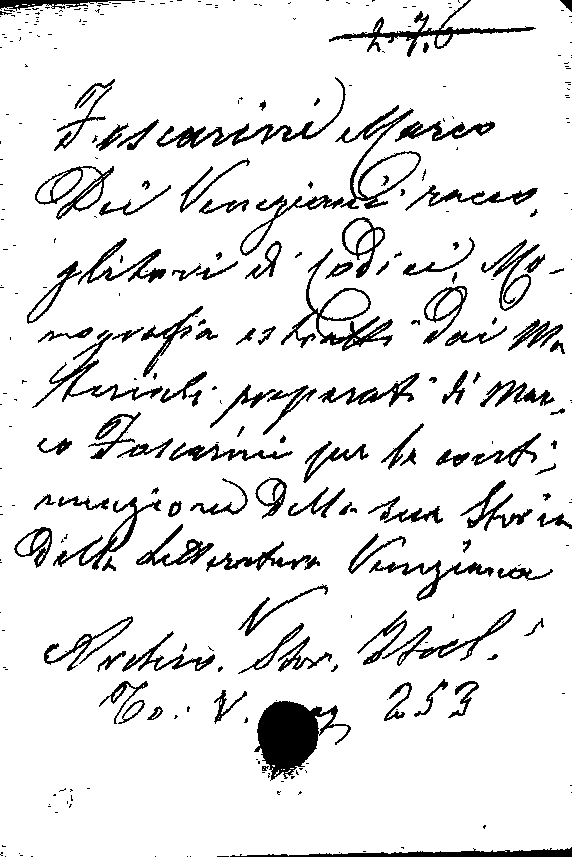 276
Foscarini Marco
Dei Veneziani racco,
glitori di Codici, Mo-
nografia estratta dai Ma
teriali preparati di Mar,
co Foscarini per la conti,
nuazione della sua Storia
della Letteratura Veneziana
Archivo. Stor. Ital.
To: V. pag 253